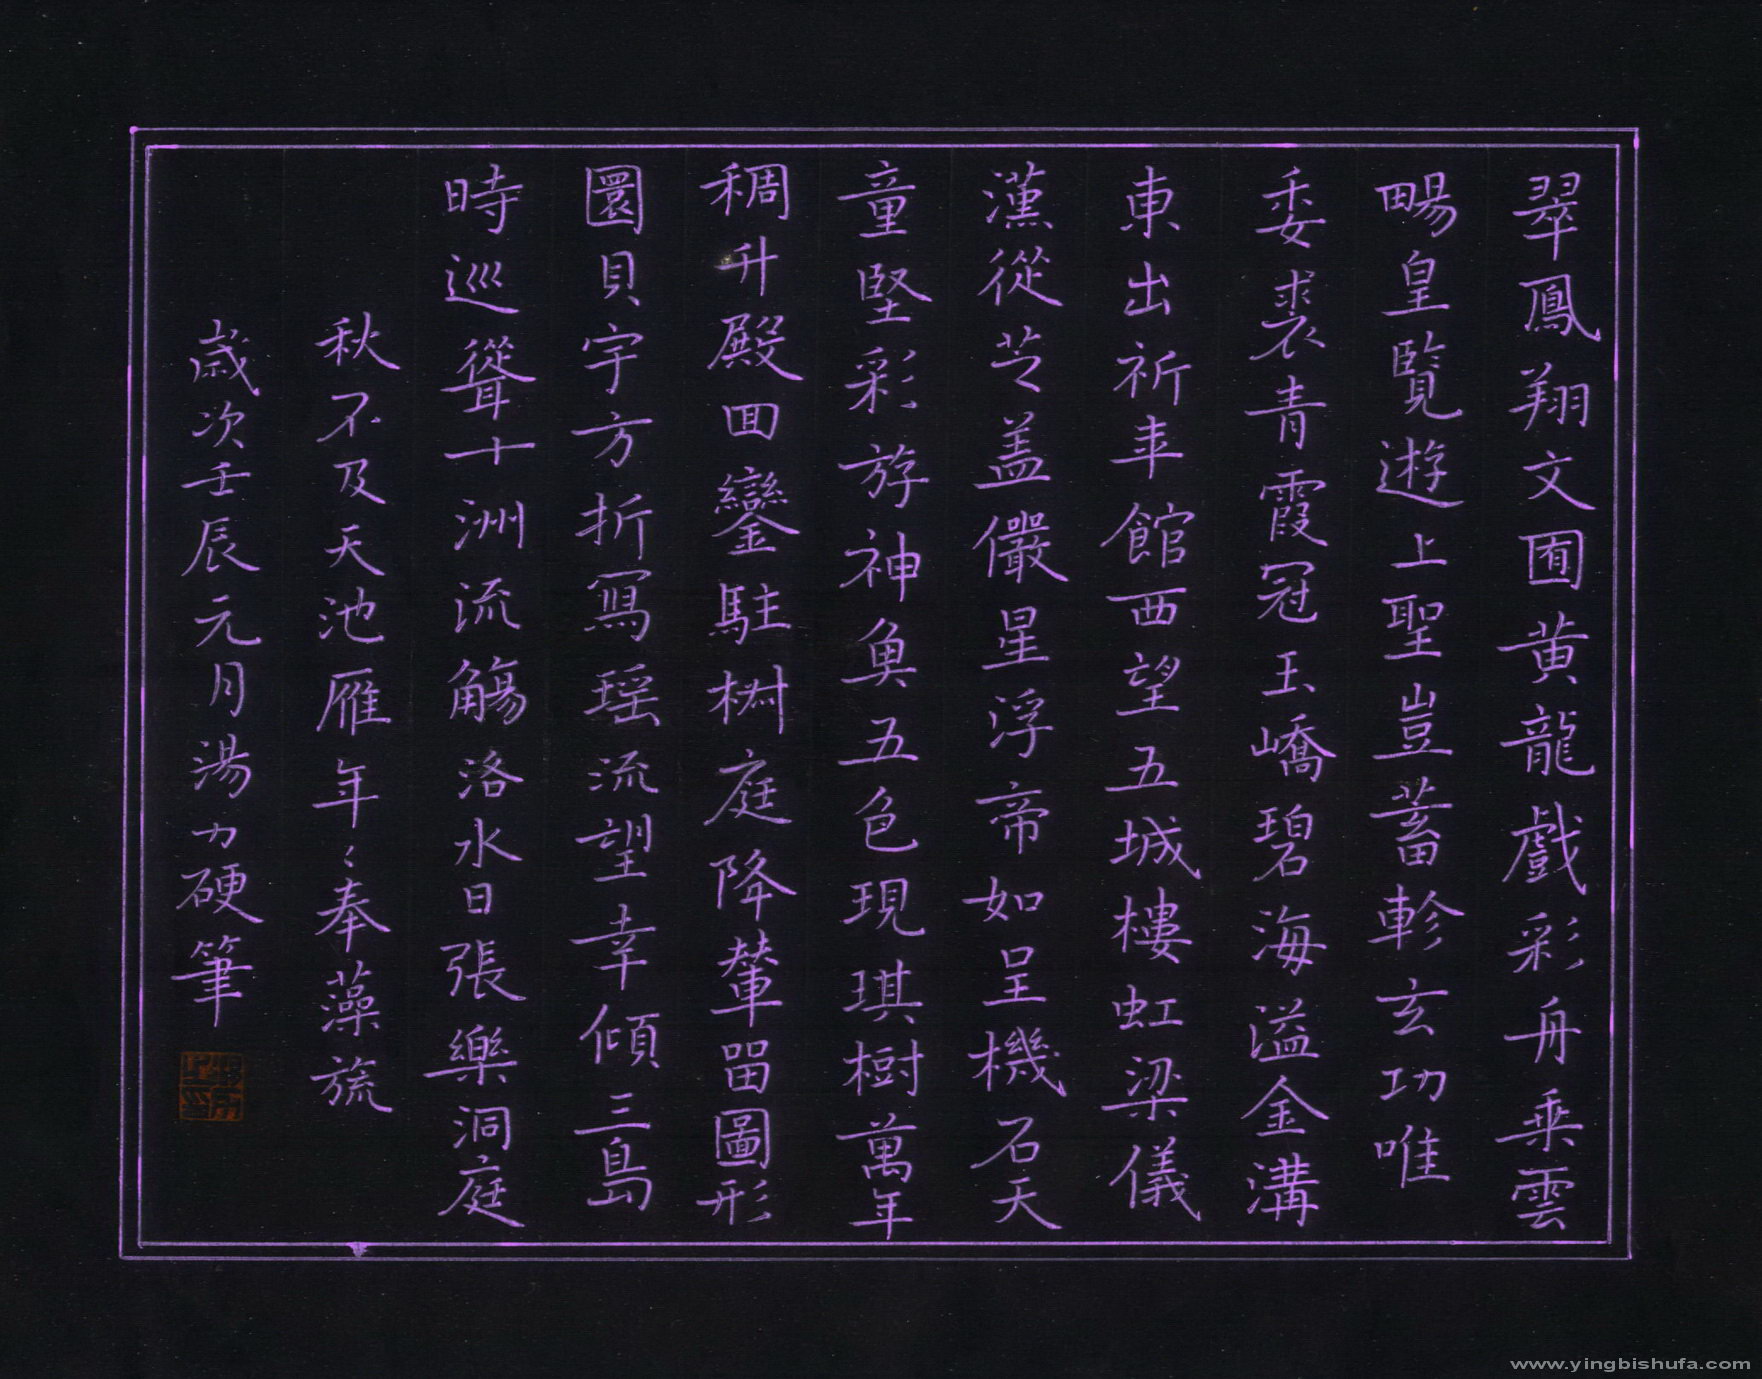 翠鳳翔文囿黃龍戲彩舟乘雲
暘皇覽遊上聖豈蓄軫玄功唯
委裘青霞冠玉嶠碧海溢金溝
東出祈年館西望五城樓虹梁儀
漢從芝盖儼星浮帝如呈機石天
童堅彩斿神魚五色現琪樹萬年
稠升殿回鑾駐樹庭降輦留圖形
圜貝宇方折寫瑶流望幸傾三島
時巡聳十洲流觴洛水日張樂洞庭
秋不及天池雁年〻奉藻旒
歲次壬辰元月湯力硬筆
www.yingbishufa.com